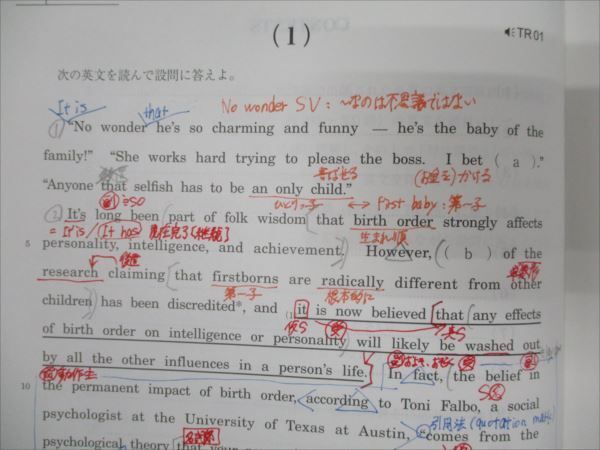 (1)
TR 01
次の英文を読んで設問に答えよ。
It is
that
No wonder SV：〜なのは不思議ではない
① "No wonder he's so charming and funny — he's the baby of the
family!" "She works hard trying to please the boss. I bet ( a )."
喜ばせる
(お金を)かける
"Anyone that selfish has to be an only child."
≒so
ひとりっ子 ↔ first baby：第一子
② It's long been part of folk wisdom that birth order strongly affects
= It is / It has 現在完了(継続)
生まれ順
5
personality, intelligence, and achievement. However, ( b ) of the
research claiming that firstborns are radically different from other
第一子
根本的に
children has been discredited*, and (1)it is now believed that any effects
仮S
真S
of birth order on intelligence or personality will likely be washed out
by all the other influences in a person's life. In fact, the belief in
10
the permanent impact of birth order, according to Toni Falbo, a social
psychologist at the University of Texas at Austin, "comes from the
引用法 (quotation
psychological theory that your